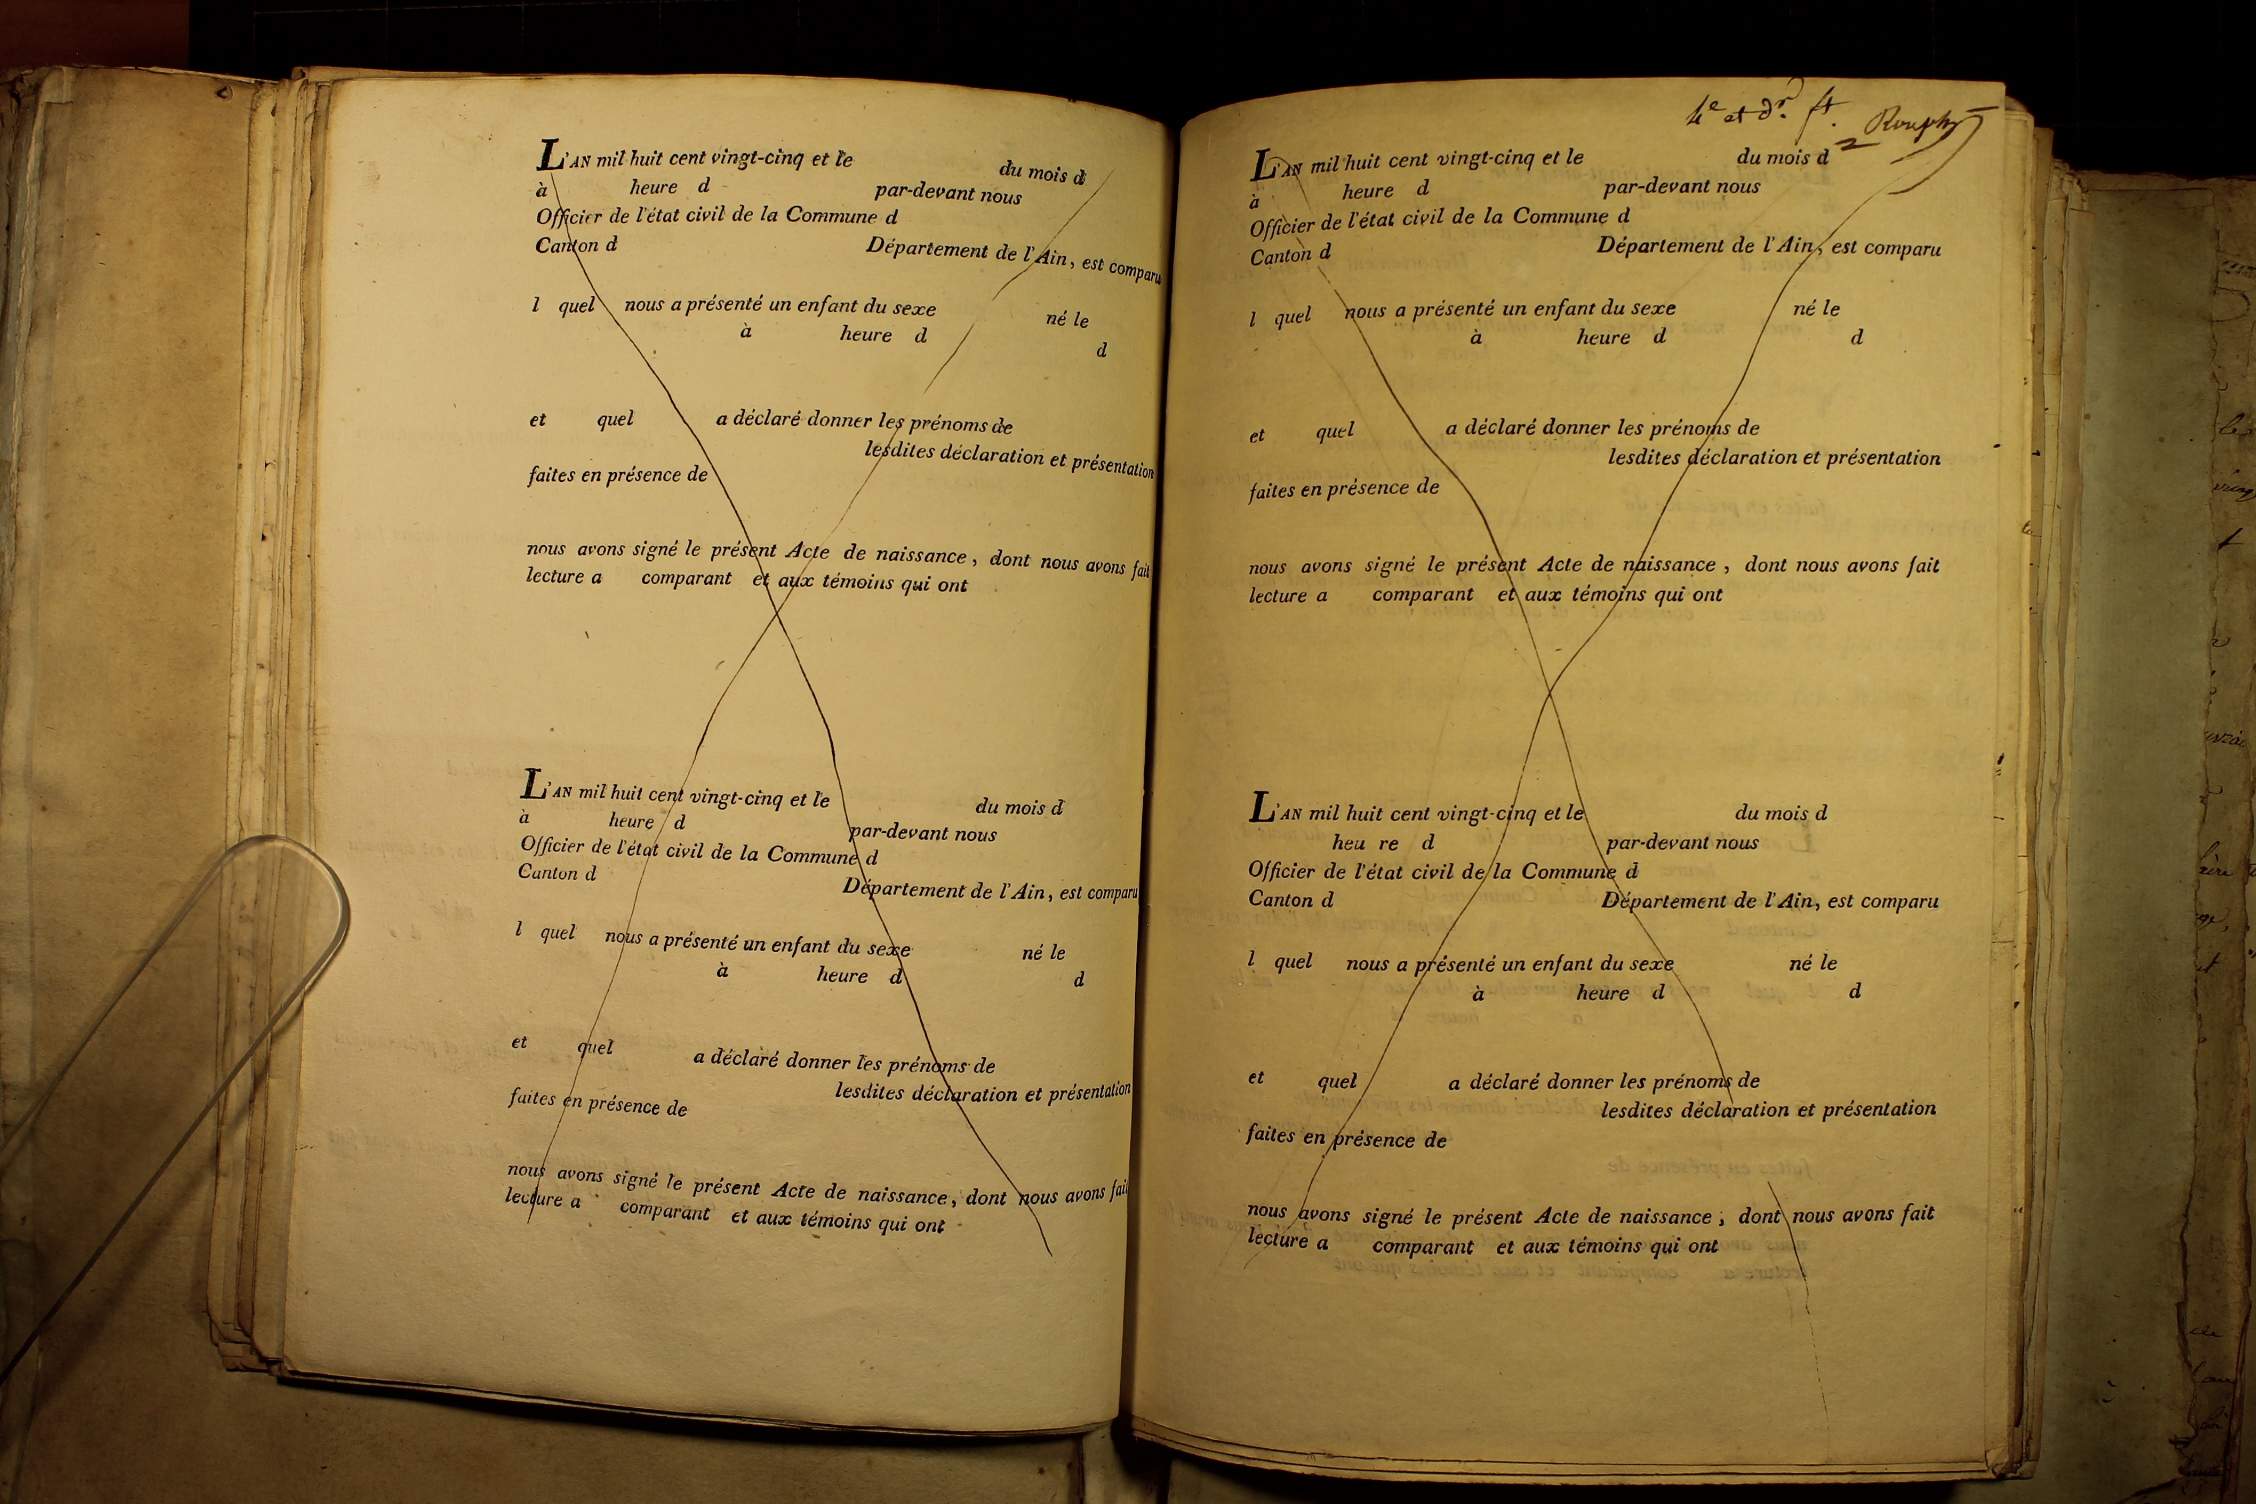 L'AN mil huit cent vingt-cinq et le du mois d
à heure d par-devant nous
Officier de l'état civil de la Commune d
Canton d Département de l'Ain, est comparu
l quel nous a présenté un enfant du sexe né le
à heure d d
et quel a déclaré donner les prénoms de
lesdites déclaration et présentation
faites en présence de
nous avons signé le présent Acte de naissance, dont nous avons fait
lecture a comparant et aux témoins qui ont
L'AN mil huit cent vingt-cinq et le du mois d
à heure d par-devant nous
Officier de l'état civil de la Commune d
Canton d Département de l'Ain, est comparu
l quel nous a présenté un enfant du sexe né le
à heure d d
et quel a déclaré donner les prénoms de
lesdites déclaration et présentation
faites en présence de
nous avons signé le présent Acte de naissance, dont nous avons fait
lecture a comparant et aux témoins qui ont
4e et dr. ft.
L'AN mil huit cent vingt-cinq et le du mois d
à heure d par-devant nous
Officier de l'état civil de la Commune d
Canton d Département de l'Ain, est comparu
l quel nous a présenté un enfant du sexe né le
à heure d d
et quel a déclaré donner les prénoms de
lesdites déclaration et présentation
faites en présence de
nous avons signé le présent Acte de naissance, dont nous avons fait
lecture a comparant et aux témoins qui ont
L'AN mil huit cent vingt-cinq et le du mois d
heu re d par-devant nous
Officier de l'état civil de la Commune d
Canton d Département de l'Ain, est comparu
l quel nous a présenté un enfant du sexe né le
à heure d d
et quel a déclaré donner les prénoms de
lesdites déclaration et présentation
faites en présence de
nous avons signé le présent Acte de naissance, dont nous avons fait
lecture a comparant et aux témoins qui ont